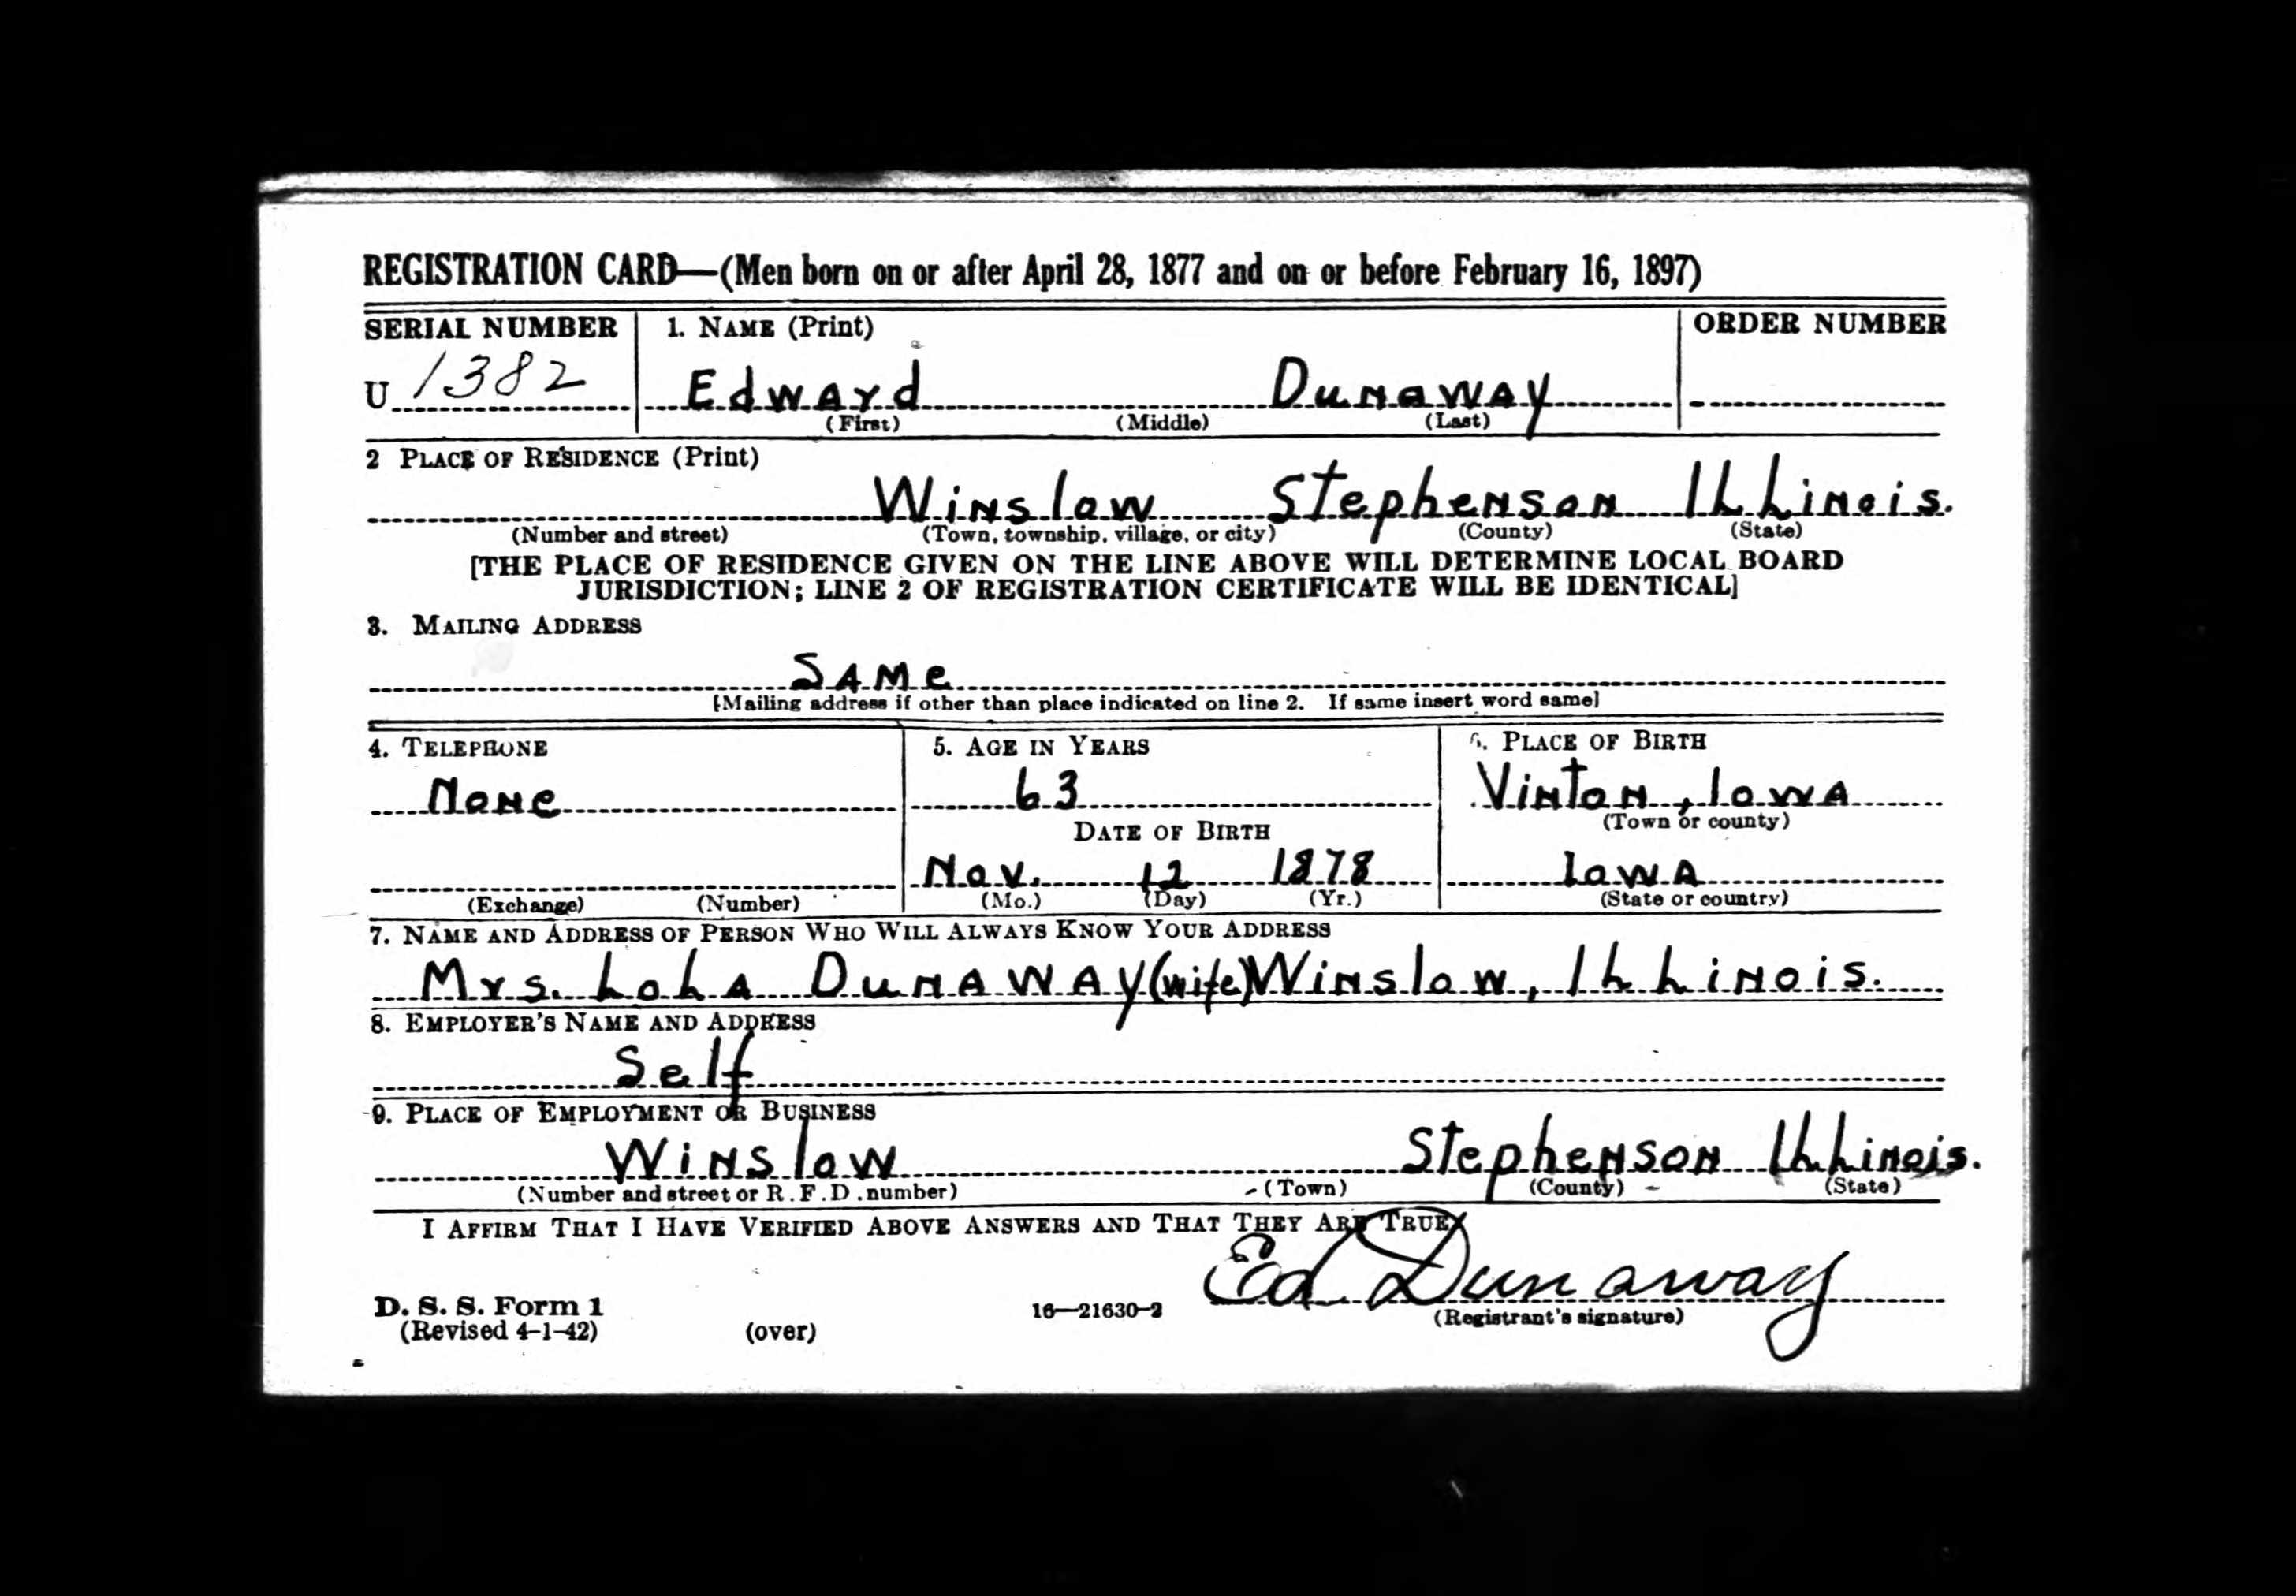 REGISTRATION CARD—(Men born on or after April 28, 1877 and on or before February 16, 1897)
SERIAL NUMBER 1. NAME (Print) ORDER NUMBER
U 1382 Edward Dunaway
(First) (Middle) (Last)
2 PLACE OF RESIDENCE (Print)
Winslow Stephenson Illinois.
(Number and street) (Town, township, village, or city) (County) (State)
[THE PLACE OF RESIDENCE GIVEN ON THE LINE ABOVE WILL DETERMINE LOCAL BOARD
JURISDICTION; LINE 2 OF REGISTRATION CERTIFICATE WILL BE IDENTICAL]
3. MAILING ADDRESS
Same
[Mailing address if other than place indicated on line 2. If same insert word same]
4. TELEPHONE 5. AGE IN YEARS 6. PLACE OF BIRTH
None 63 Vinton, Iowa
DATE OF BIRTH (Town or county)
Nov. 12 1878 Iowa
(Exchange) (Number) (Mo.) (Day) (Yr.) (State or country)
7. NAME AND ADDRESS OF PERSON WHO WILL ALWAYS KNOW YOUR ADDRESS
Mrs. Lola Dunaway (wife) Winslow, Illinois.
8. EMPLOYER'S NAME AND ADDRESS
Self
9. PLACE OF EMPLOYMENT OR BUSINESS
Winslow Stephenson Illinois.
(Number and street or R. F. D. number) (Town) (County) (State)
I AFFIRM THAT I HAVE VERIFIED ABOVE ANSWERS AND THAT THEY ARE TRUE
Ed Dunaway
D. S. S. Form 1 16—21630-2 (Registrant's signature)
(Revised 4-1-42) (over)